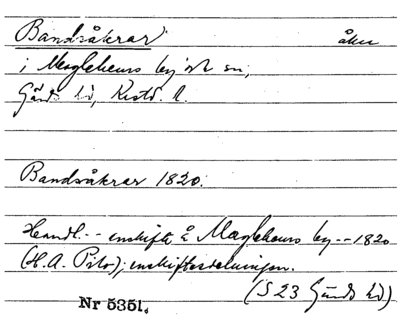 Bandsåkrar åker
i Maglehems by o sn,
Gärds hd, Krstd. l.
Bandsåkrar 1820.
Handl. -- enskifte å Maglehems by -- 1820
(H.A. ); enskiftesdelningen.
(S 23 Gärds hd)
Nr 5351.